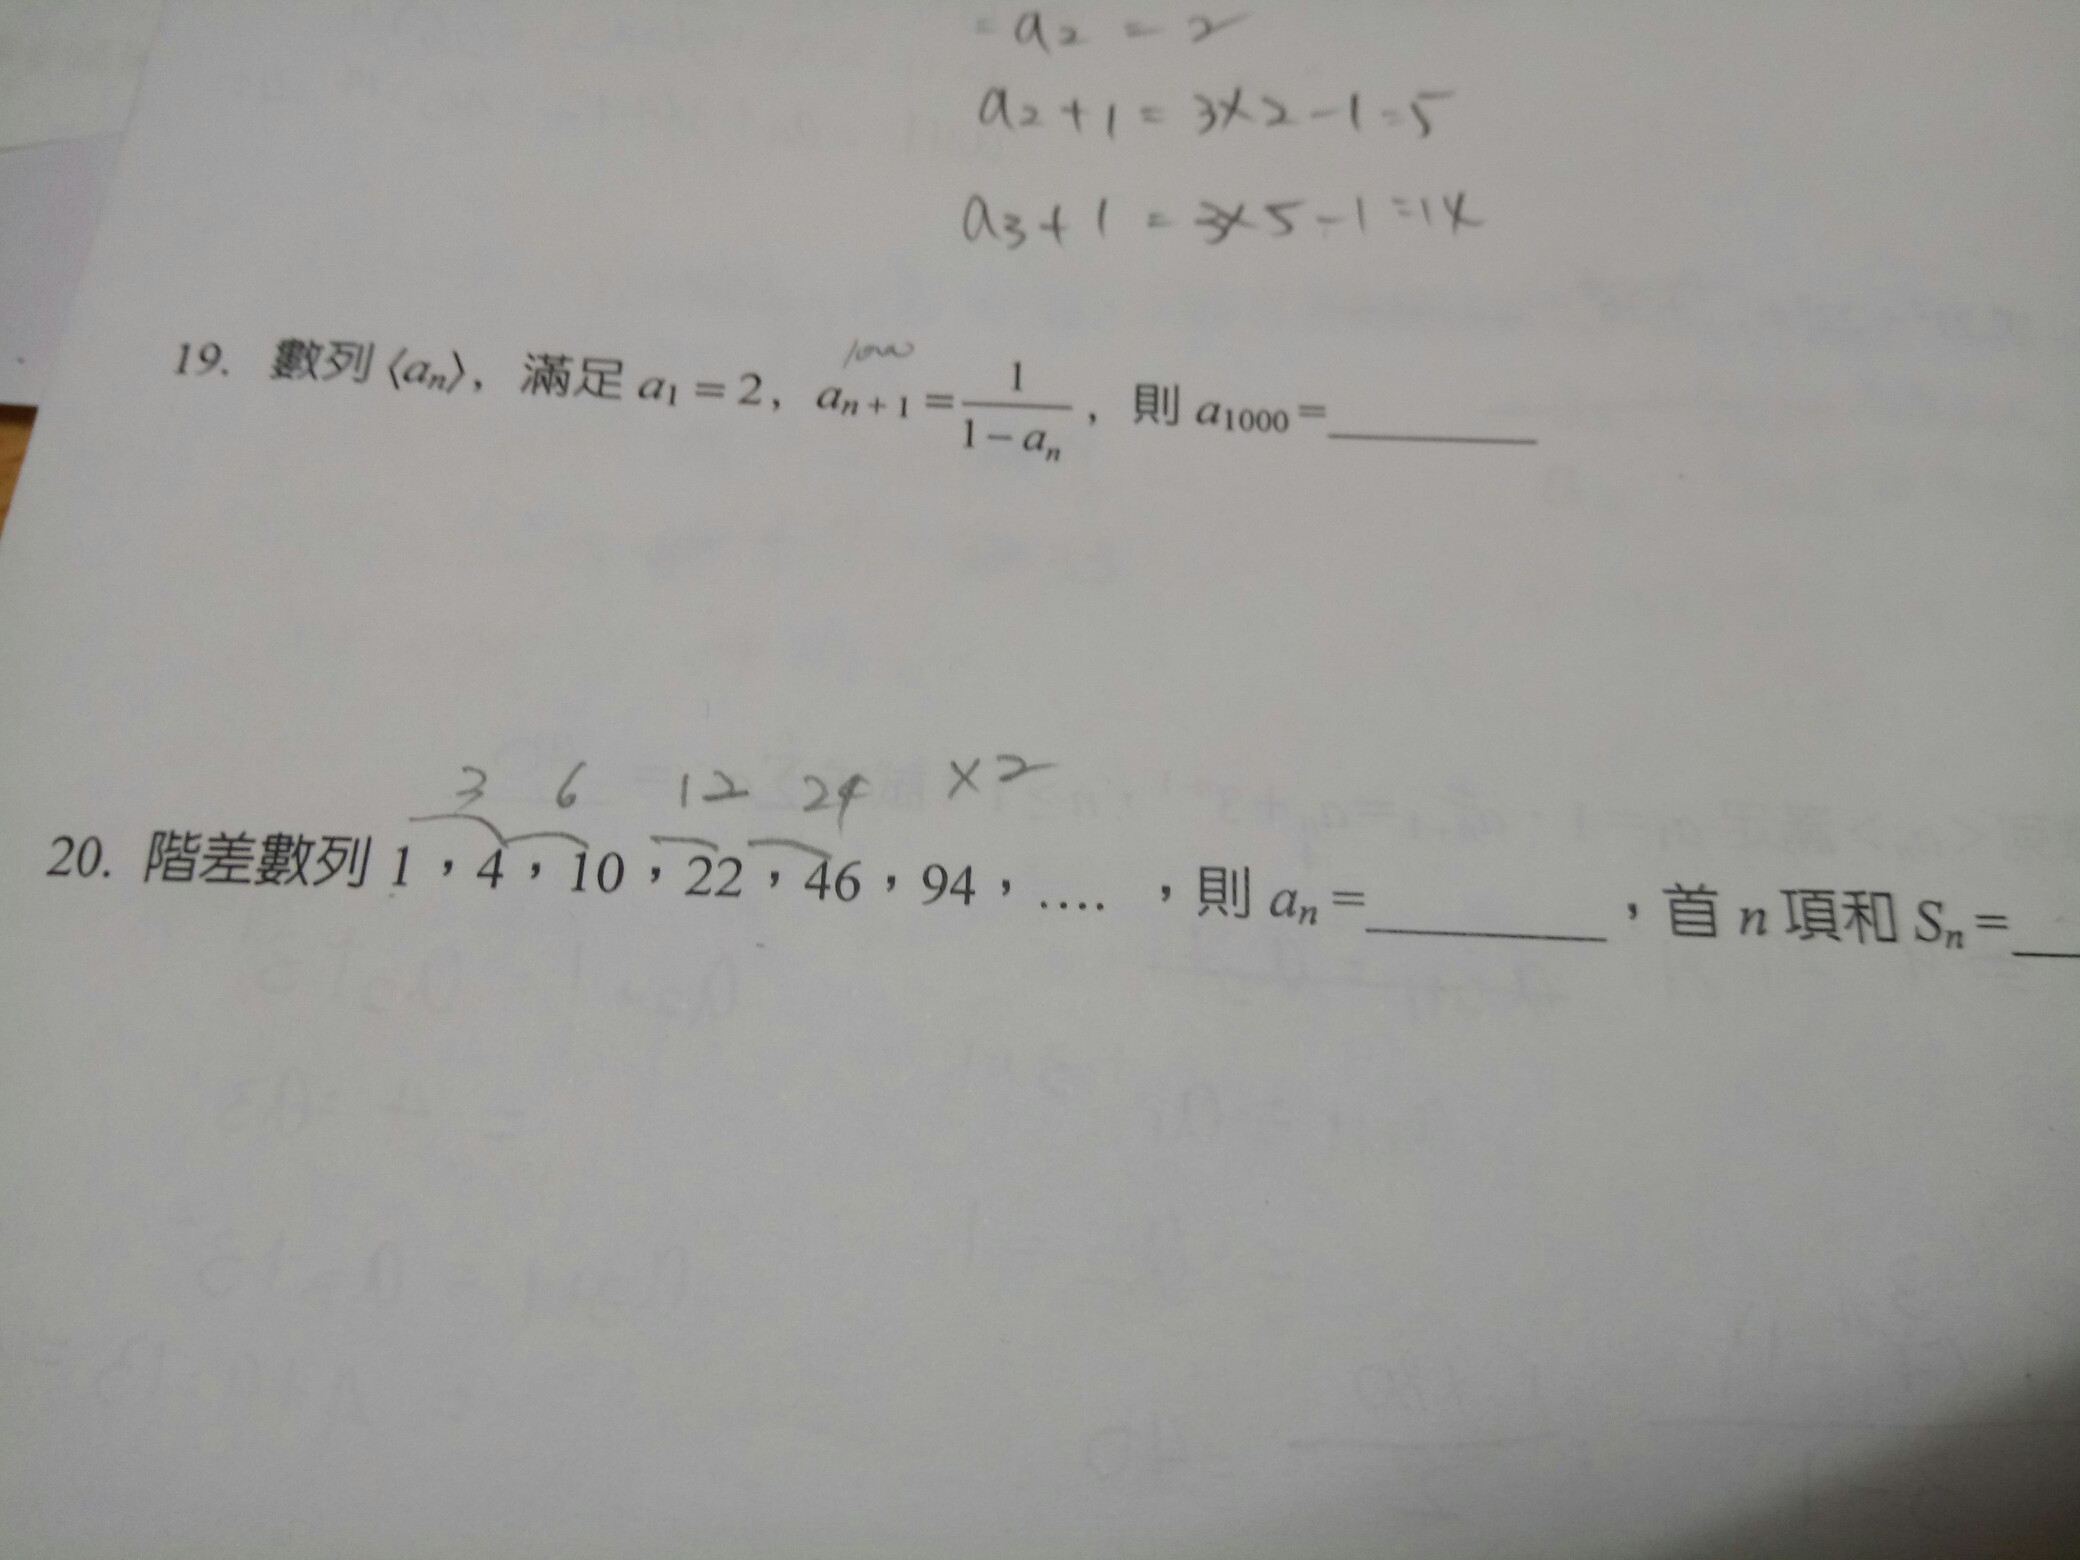 = a₂ = 2
a₂ + 1 = 3×2-1=5
a₃ + 1 = 3×5-1=14
19. 數列⟨aₙ⟩，滿足 a₁ = 2，aₙ₊₁ = 1/(1-aₙ)，則 a₁₀₀₀ = ______
3 6 12 24 ×2
20. 階差數列 1，4，10，22，46，94，.... ，則 aₙ = ______，首 n 項和 Sₙ = __